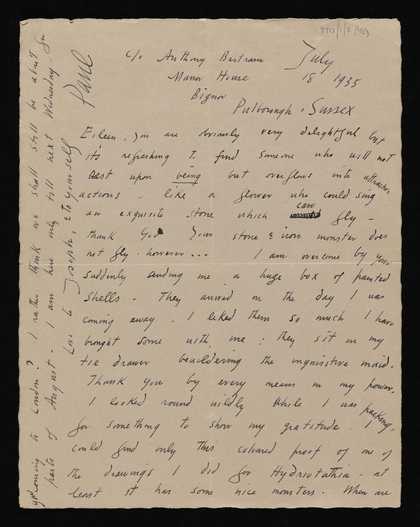 c/o Anthony Bertram
Manor House
Bignor
Pulborough. Sussex
July
18 1935
Eileen, you are obviously very delightful but
it's refreshing to find someone who will not
rest upon being but overflows into attractive
actions. like a flower who could sing
an exquisite stone which can fly -
thank God your stone & iron monster does
not fly. however... I am overcome by your
suddenly sending me a huge box of painted
shells. They arrived on the day I was
coming away. I liked them so much I have
brought some with me: they sit in my
tie drawer bewildering the inquisitive maid.
Thank you by every means in my power.
I looked round wildly while I was packing,
for something to show my gratitude. I
could find only this coloured proof of one of
the drawings I did for Hydriotaphia - at
least it has some nice monsters. When are
you coming to London? I rather think we shall still be about
parts of August. I am here only till next Wednesday. In
Love to Joseph, & to yourself
Paul